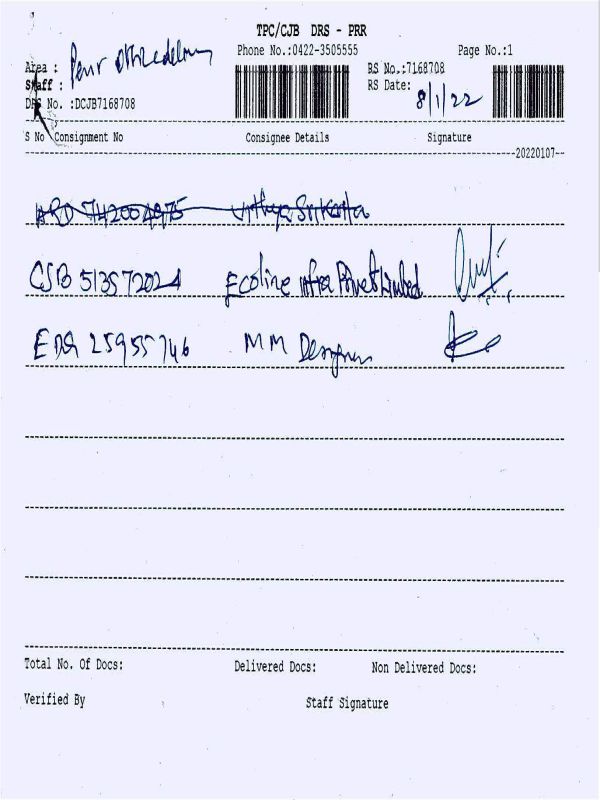 TPC/CJB DRS - PRR
Phone No.:0422-3505555 Page No.:1
Area : RS No.:7168708
Staff : RS Date: 8/1/22
DRS No. :DCJB7168708
S No Consignment No Consignee Details Signature
20220107
CSB 513572024 Ecoline Infra Private Limited
EDQ 25955746 MM Designer
Total No. Of Docs: Delivered Docs: Non Delivered Docs:
Verified By Staff Signature